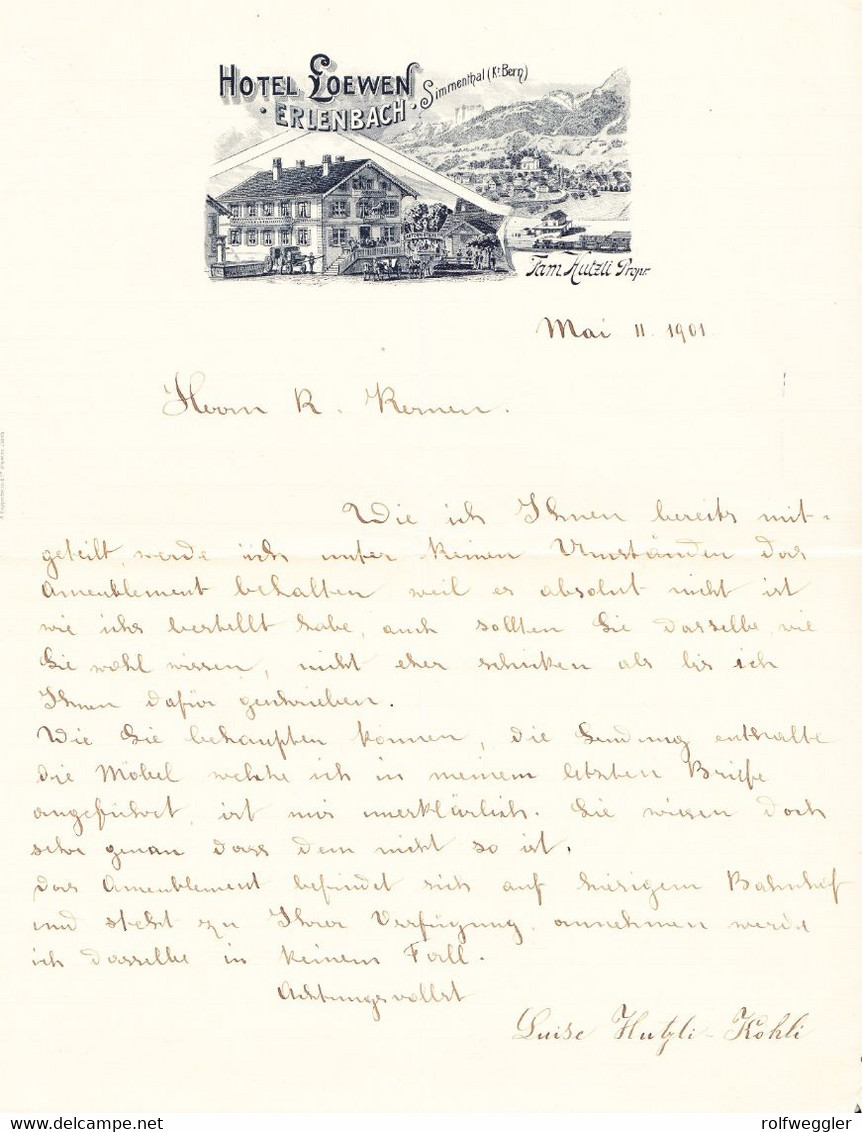 HOTEL LOEWEN
ERLENBACH
Simmenthal (Kt. Bern)
Fam. Hutzli Propr.
Mai 11. 1901
Herrn R. Kernen.
Wie ich Ihnen bereits mit-
geteilt, werde ich unter keinen Umständen das
Ameublement behalten weil es absolut nicht ist
wie ichs bestellt habe, auch sollten Sie dasselbe, wie
Sie wohl wissen, nicht eher schicken als bis ich
Ihnen dafür geschrieben.
Wie Sie behaupten können, die Sendung enthalte
die Möbel welche ich in meinem letzten Briefe
angeführt, ist mir unerklärlich. Sie wissen doch
sehr genau dass dem nicht so ist.
Das Ameublement befindet sich auf hiesigem Bahnhof
und steht zu Ihrer Verfügung, annehmen werde
ich dasselbe in keinem Fall.
Achtungsvollst
Luise Hutzli-Kohli
www.delcampe.net
rolfweggler